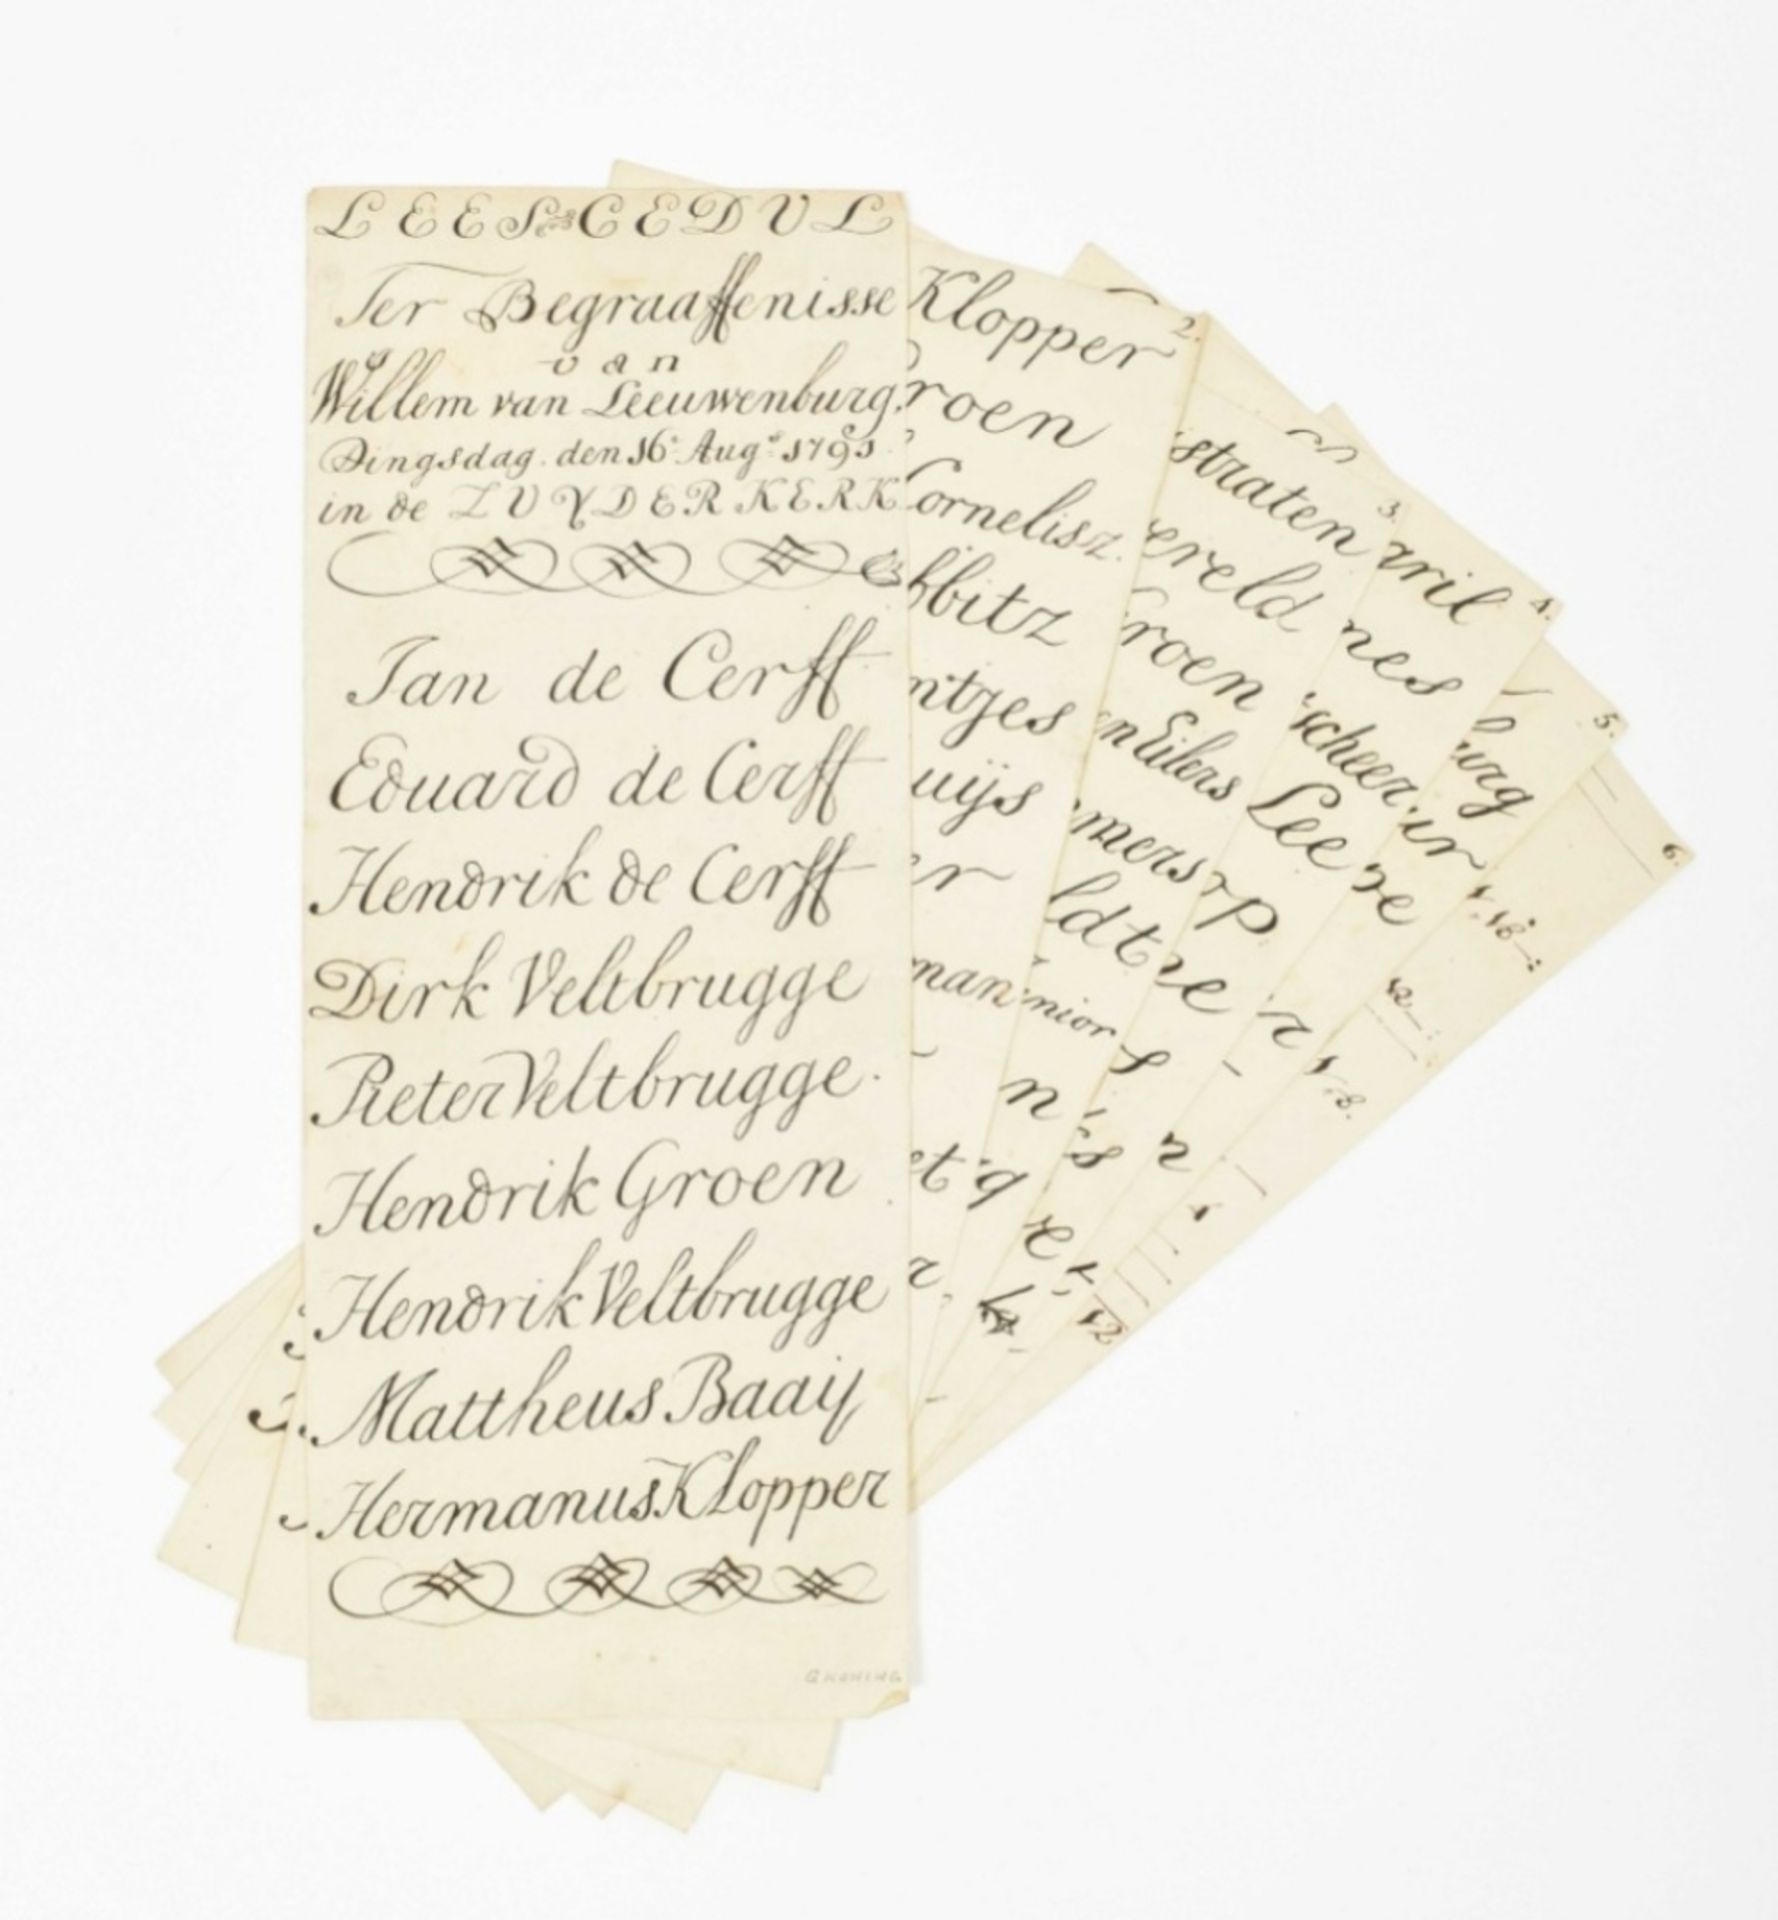 LEES CEDUL
Ter Begraaffenisse
van
Willem van Leeuwenburg.
Dingsdag den 16e Augs 1791
in de ZUYDERKERK
Jan de Cerff
Eduard de Cerff
Hendrik de Cerff
Dirk Veltbrugge
Pieter Veltbrugge.
Hendrik Groen
Hendrik Veltbrugge
Mattheus Baaij
Hermanus Klopper
G KONING
2.
Klopper
roen
Cornelisz.
bbitz
ntjes
uijs
er
man
et
3.
straten
ereld
Groen
n Eilers
mers
ldt
nior
n
4.
vril
nes
scheer
Lee
op
5.
urg
ir
6.